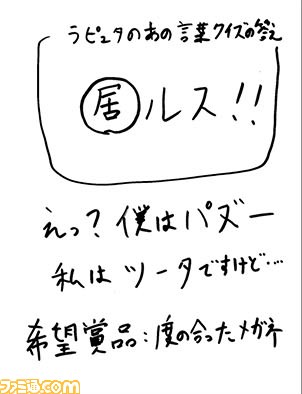 ラピュタのあの言葉クイズの答え
居ルス!!
えっ?僕はパズー
私はツータですけど…
希望賞品:度の合ったメガネ
ファミ通.com